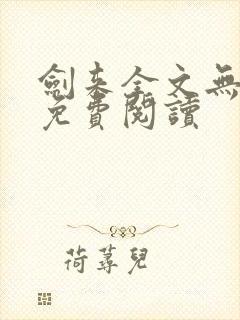 劍來全文無
免費閱讀
荷蕁兒